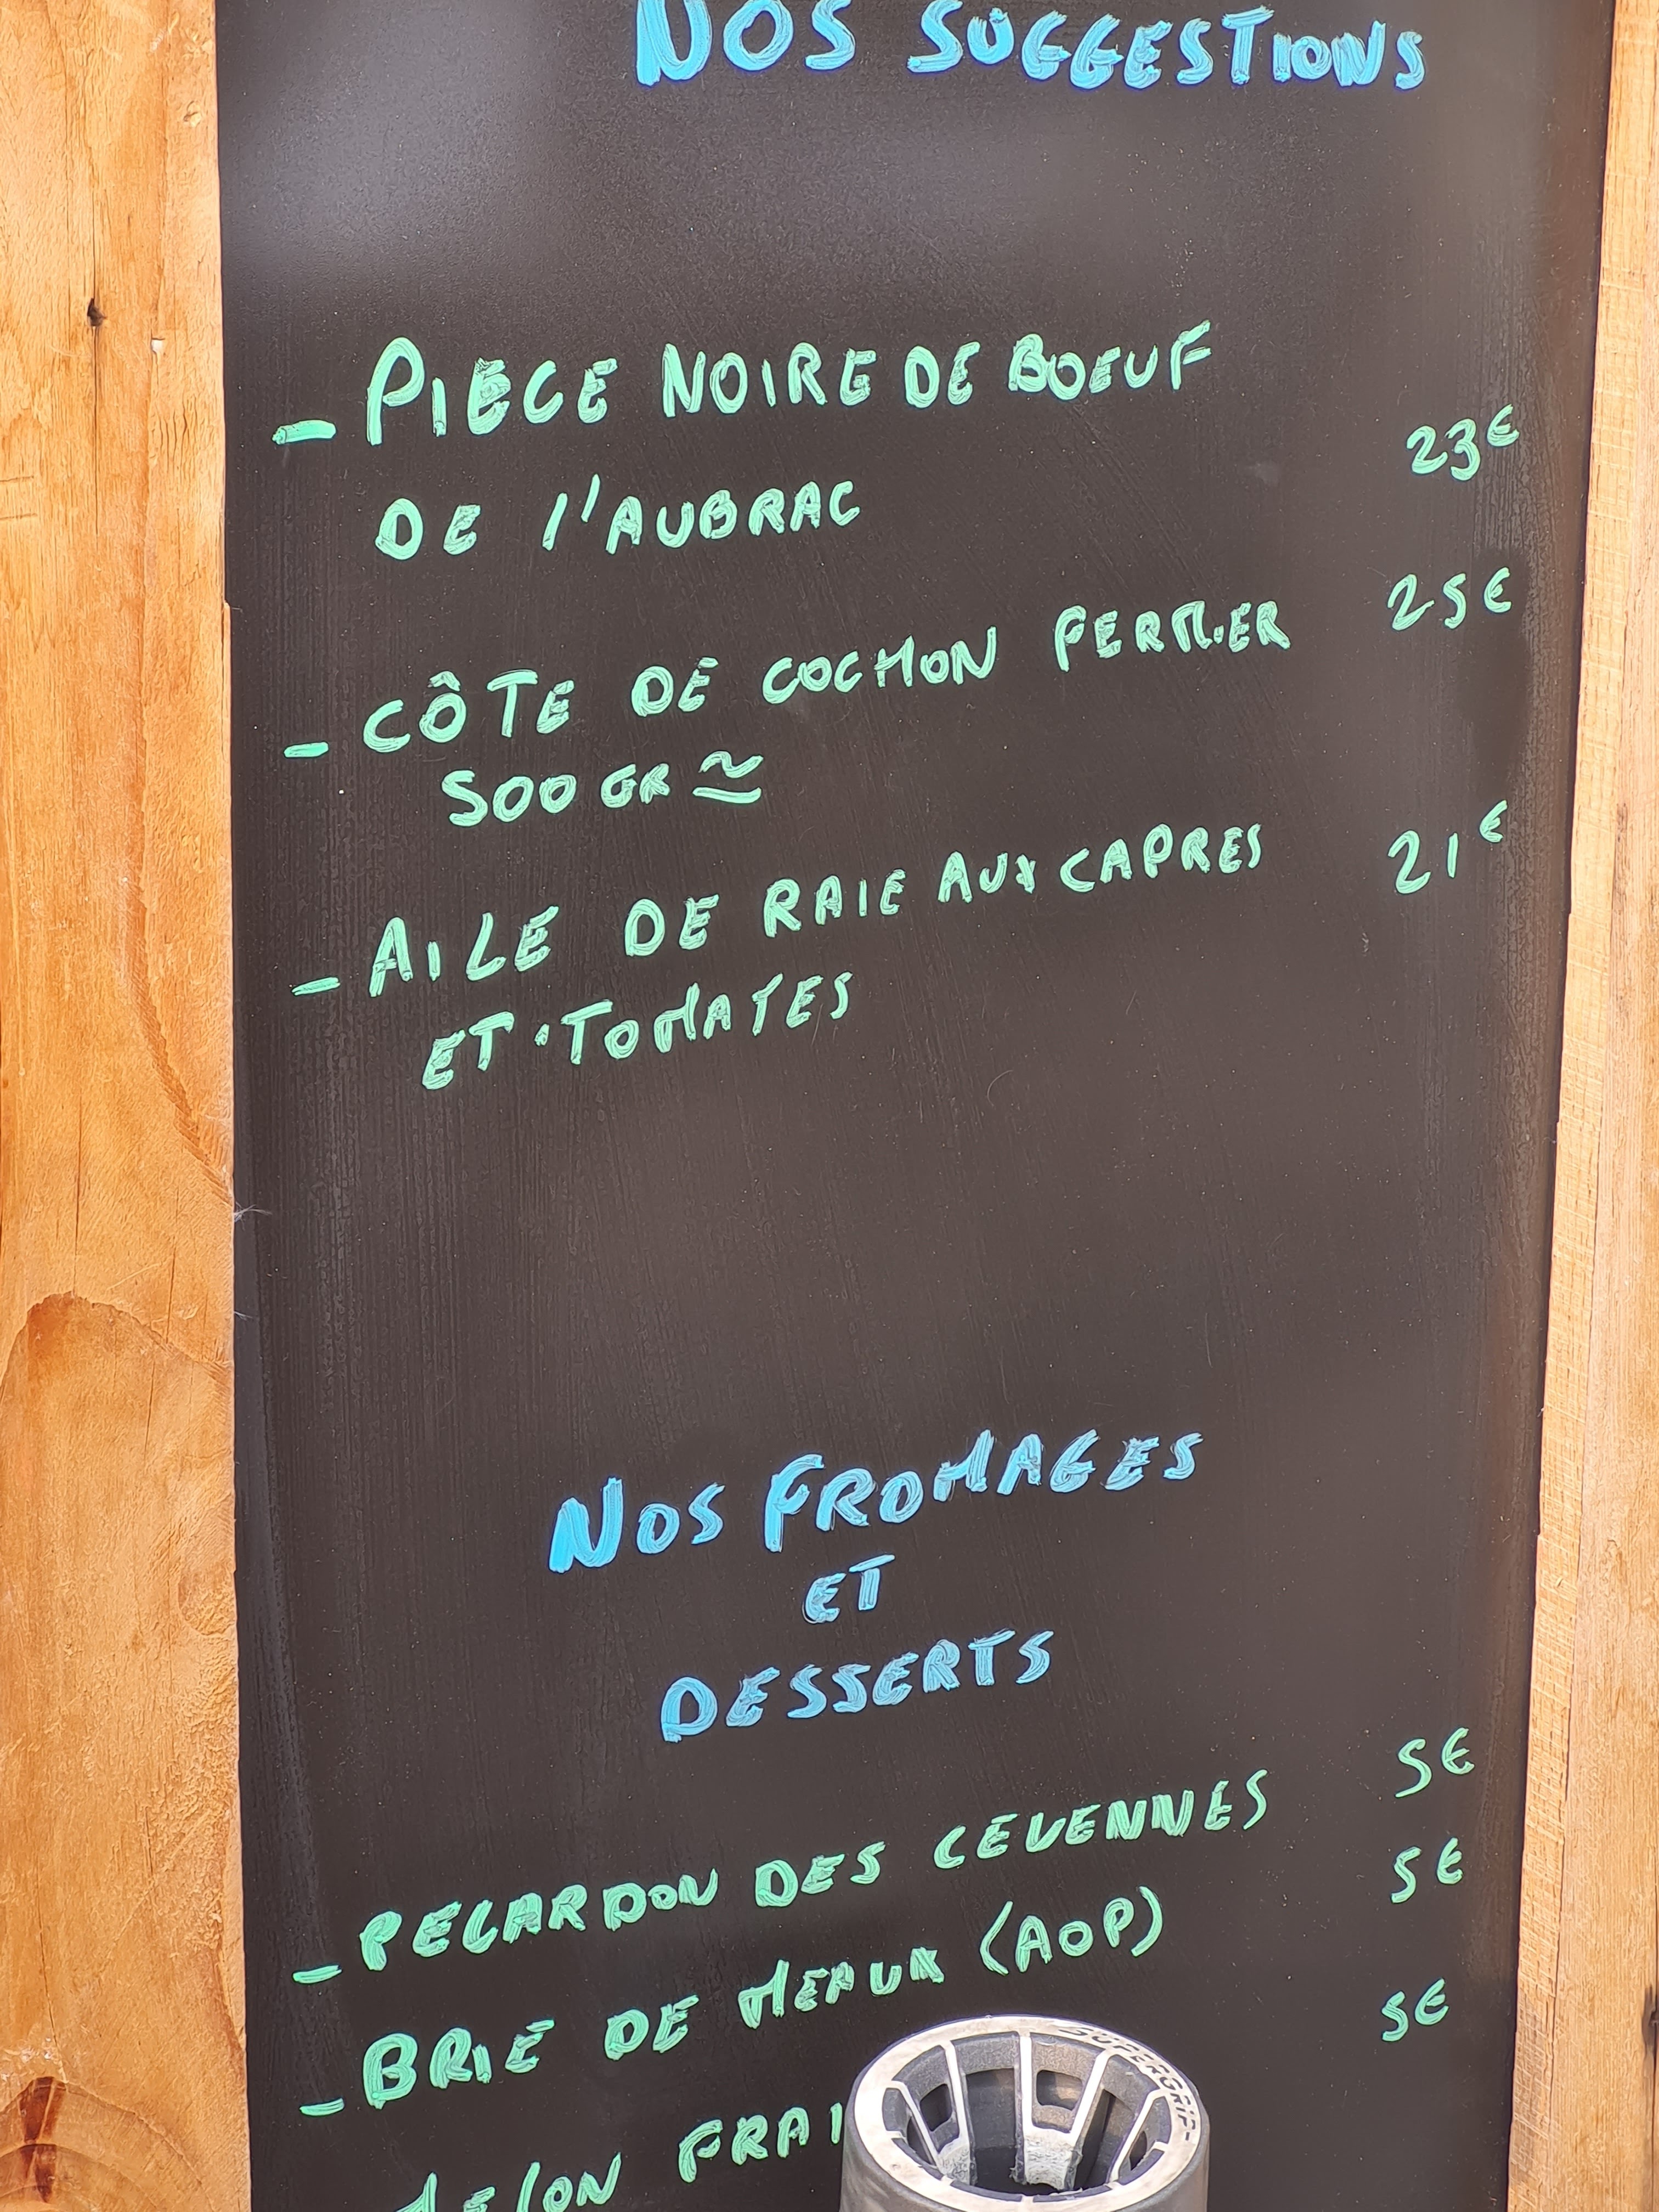 NOS SUGGESTIONS
- PIÈCE NOIRE DE BOEUF
DE l'AUBRAC 23€
- CÔTE DE COCHON FERMIER 25€
500 GR ≃
- AILE DE RAIE AUX CAPRES 21€
ET TOMATES
NOS FROMAGES
ET
DESSERTS
- PELARDON DES CEVENNES 5€
- BRIE DE MEAUX (AOP) 5€
MELON FRAI 5€
SUPERGRIP